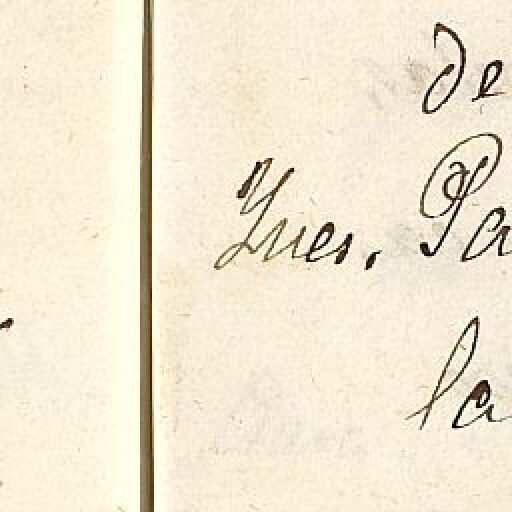 de
Ynes. Pa
la